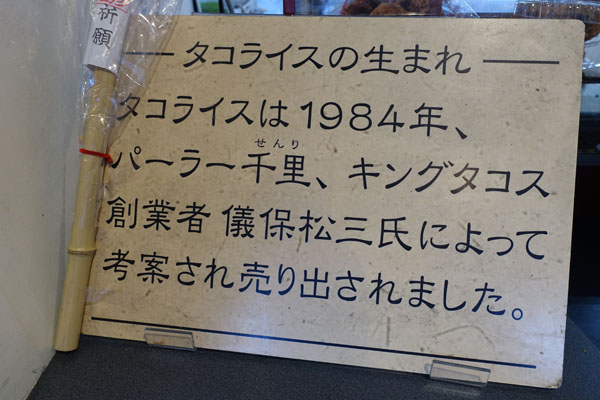 祈願
タコライスの生まれ
タコライスは1984年、
せんり
パーラー千里、キングタコス
創業者 儀保松三氏によって
考案され売り出されました。